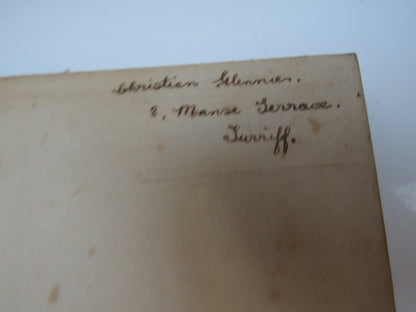 Christian Glennie.
2, Manse Terrace.
Turriff.